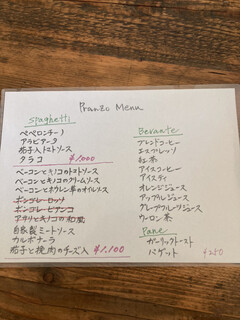 Pranzo Menu
Spaghetti
ペペロンチーノ
アラビアータ
茄子入トマトソース
タラコ ¥1,000
ベーコンとキノコのトマトソース
ベーコンとキノコのクリームソース
ベーコンとホウレン草のオイルソース
ボンゴレ・ロッソ
ボンゴレ・ビアンコ
アサリとキノコの和風
自家製ミートソース
カルボナーラ
茄子と挽肉のチーズ入 ¥1,100
Bevante
ブレンドコーヒー
エスプレッソ
紅茶
アイスコーヒー
アイスティ
オレンジジュース
アップルジュース
グレープフルーツジュース
ウーロン茶
Pane
ガーリックトースト
バゲット ¥250